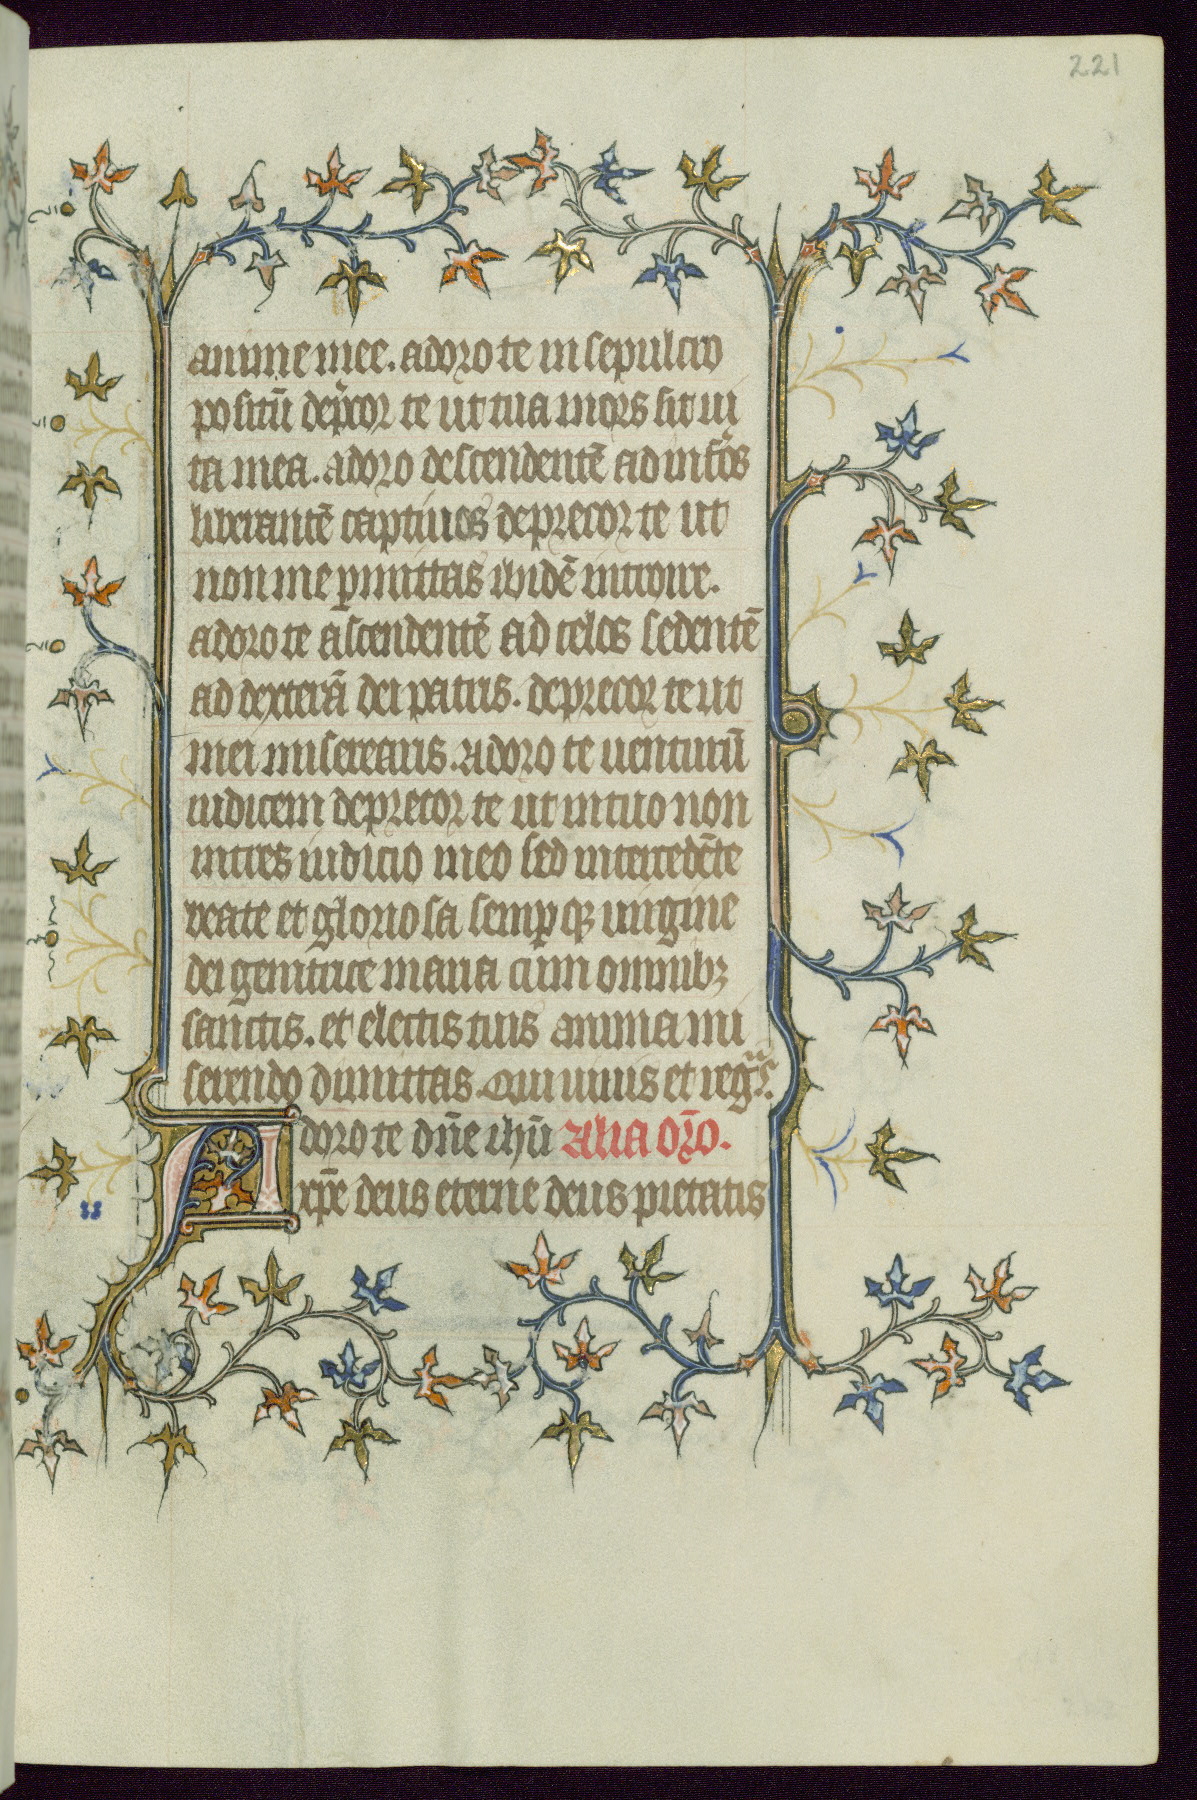 221
anime mee. adoro te in sepulcro
positū dep̄cor te ut tua mors sit ui
ta mea. adoro descendentē ad inf̄os
liberantē captiuos deprecor te ut
non me p̱mittas ibidē introire.
adoro te ascendentē ad celos sedentē
ad dexterā dei patris. deprecor te ut
mei miserearis. Adoro te uenturū
iudicem deprecor te ut in tuo non
intres iudicio meo sed intercedēte
beate et gloriosa semp̱ qꝫ uirgine
dei genitrice maria cum omnibꝫ
sanctis. et electis tuis anima mi
serendo dimittas. Qui uiuis et reg̃.
Adoro te dn̄e ihū Alia or̄o.
xp̄e deus eterne deus pietatis